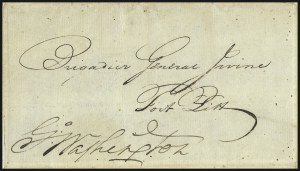 Brigadier General Irvine
Fort Pitt
Go Washington